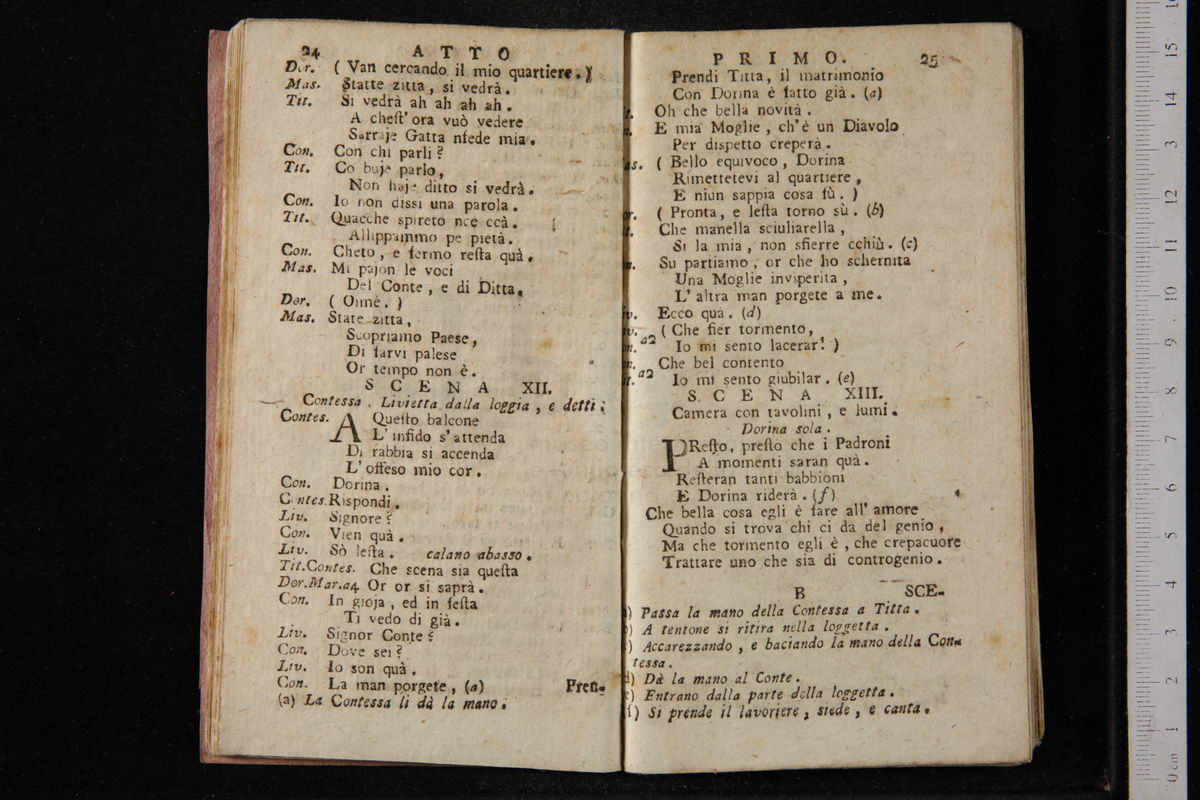 24 ATTO
Dor. ( Van cercando il mio quartiere. )
Mas. Statte zitta, si vedrà.
Tit. Si vedrà ah ah ah ah.
A cheſt' ora vuò vedere
Sarraje Gatta nfede mia.
Con. Con chi parli?
Tit. Co buje parlo,
Non haje ditto si vedrà.
Con. Io non dissi una parola.
Tit. Quacche spireto nce ccà.
Allippammo pe pietà.
Con. Cheto, e fermo reſta quà.
Mas. Mi pajon le voci
Del Conte, e di Ditta.
Dor. ( Oimè. )
Mas. State zitta,
Scopriamo Paese,
Di farvi palese
Or tempo non è.
SCENA XII.
Contessa, Livietta dalla loggia, e detti.
Contes. A Queſto balcone
L' infido s' attenda
Di rabbia si accenda
L' offeso mio cor.
Con. Dorina.
Contes. Rispondi.
Liv. Signore?
Con. Vien quà.
Liv. Sò leſta. calano abasso.
Tit.Contes. Che scena sia queſta
Dor.Mar.a4 Or or si saprà.
Con. In gioja, ed in feſta
Ti vedo di già.
Liv. Signor Conte?
Con. Dove sei?
Liv. Io son quà.
Con. La man porgete, (a) Pren-
(a) La Contessa li dà la mano.
PRIMO. 25
Prendi Titta, il matrimonio
Con Dorina è fatto già. (a)
t. Oh che bella novità.
n. E mia Moglie, ch' è un Diavolo
Per dispetto creperà.
as. ( Bello equivoco, Dorina
Rimettetevi al quartiere,
E niun sappia cosa fù. )
or. ( Pronta, e leſta torno sù. (b)
t. Che manella sciuliarella,
Si la mia, non sfierre cchiù. (c)
n. Su partiamo, or che ho schernita
Una Moglie inviperita,
L' altra man porgete a me.
v. Ecco quà. (d)
v. ( Che fier tormento,
on. a2 Io mi sento lacerar! )
n. Che bel contento
t. a2 Io mi sento giubilar. (e)
SCENA XIII.
Camera con tavolini, e lumi.
Dorina sola.
PReſto, preſto che i Padroni
A momenti saran quà.
Reſteran tanti babbioni
E Dorina riderà. (f)
Che bella cosa egli è fare all' amore
Quando si trova chi ci dà del genio,
Ma che tormento egli è, che crepacuore
Trattare uno che sia di controgenio.
B SCE-
) Passa la mano della Contessa a Titta.
) A tentone si ritira nella loggetta.
) Accarezzando, e baciando la mano della Con-
tessa.
d) Dà la mano al Conte.
e) Entrano dalla parte della loggetta.
f) Si prende il lavoriere, siede, e canta.